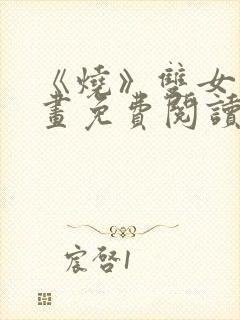 《燒》雙女
畫免費閱讀
宸啓1